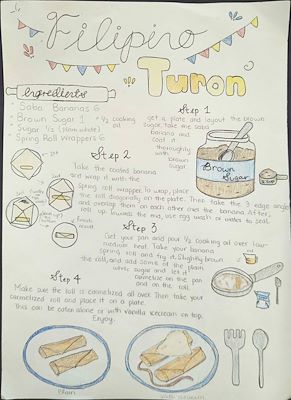 Filipino
Turon
Ingredients
Saba Bananas 6
Brown Sugar 1
Sugar 1/2 (plain white)
Spring Roll Wrappers 6
1/2 cooking oil
Step 1
get a plate and layout the brown
sugar. Take the saba
banana and
coat it
thoroughly
with
brown
sugar.
Brown
Sugar
Step 2
Take the coated banana
and wrap it with the
spring roll wrapper. To wrap, place
the roll diagonally on the plate. Then take the 3 edges
and overlap them on each other over the banana. After,
roll up. Towards the end, use egg wash or water to seal.
Step 3
Get your pan and pour 1/2 cooking oil over low-
medium heat. Take your banana
spring roll and fry it. Slightly brown
the roll, and add some of the plain
white sugar and let it
carmelize on the pan
and on the roll.
Step 4
Make sure the roll is carmelized all over. Then take your
carmelized roll and place it on a plate.
This can be eaten alone or with vanilla icecream on top.
Enjoy.
Plain